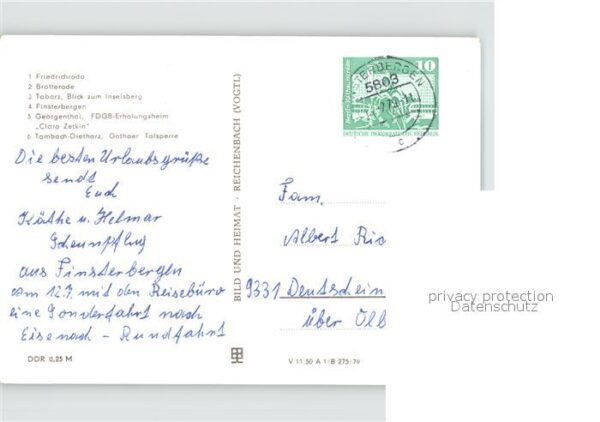 1 Friedrichroda
2 Brotterode
3 Tabarz, Blick zum Inselsberg
4 Finsterbergen
5 Georgenthal, FDGB-Erholungsheim
„Clara Zetkin“
6 Tambach-Dietharz, Gothaer Talsperre
Die besten Urlaubsgrüße
sendt
Euch
Käthe u. Helmar
Scheunpflug
aus Finsterbergen
am 12.7. mit den Reisebüro
eine Sonderfahrt nach
Eisenach - Rundfahrt
DDR 0,25 M
BILD UND HEIMAT · REICHENBACH (VOGTL)
10
DEUTSCHE DEMOKRATISCHE REPUBLIK
FINSTERBERGEN
5803
c
Fam.
Albert Ric
9331 Deutschein
über Olb
V 11 50 A 1/B 275/79
privacy protection
Datenschutz